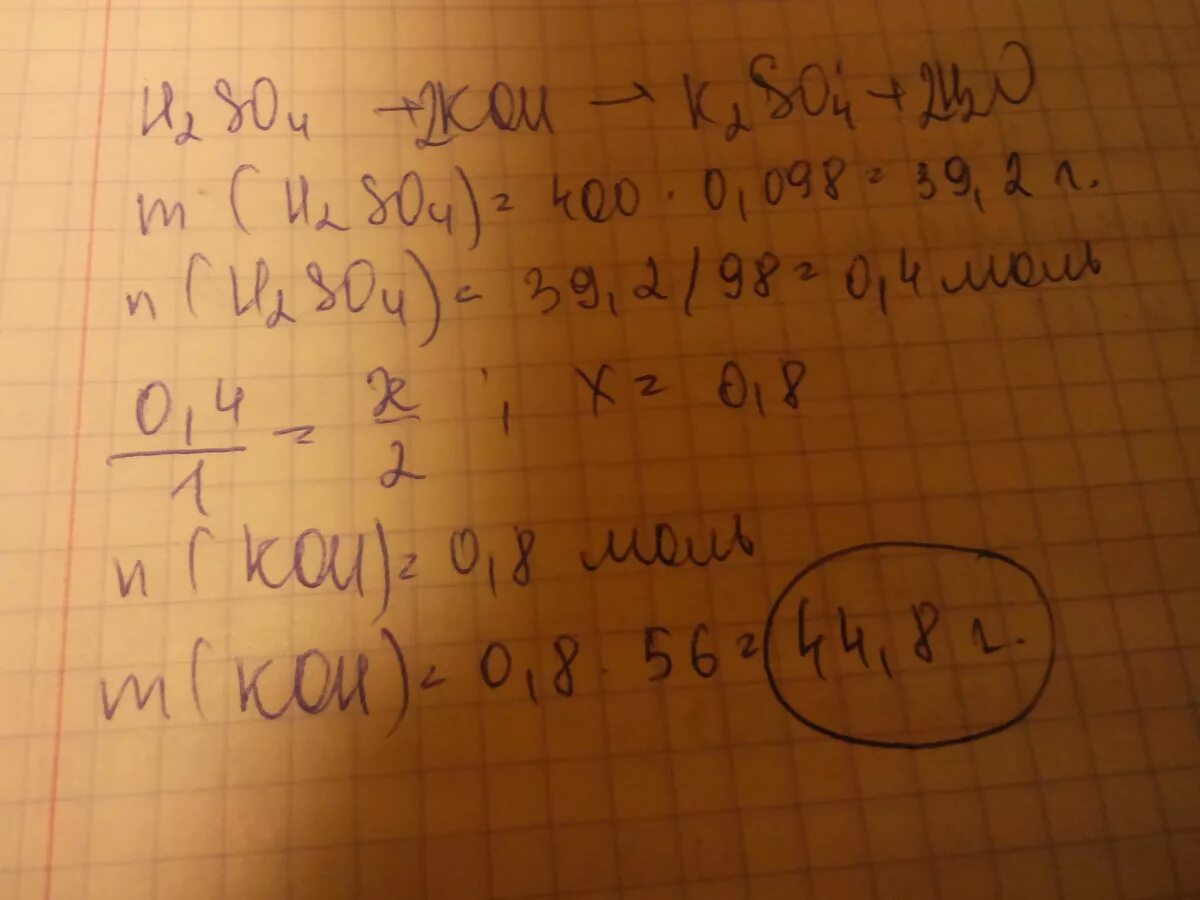 H₂SO₄ + 2KOH → K₂SO₄ + 2H₂O
m (H₂SO₄) = 400 · 0,098 = 39,2 г.
n (H₂SO₄) = 39,2 / 98 = 0,4 моль
0,4/1 = x/2 ; x = 0,8
n (KOH) = 0,8 моль
m (KOH) = 0,8 · 56 = 44,8 г.